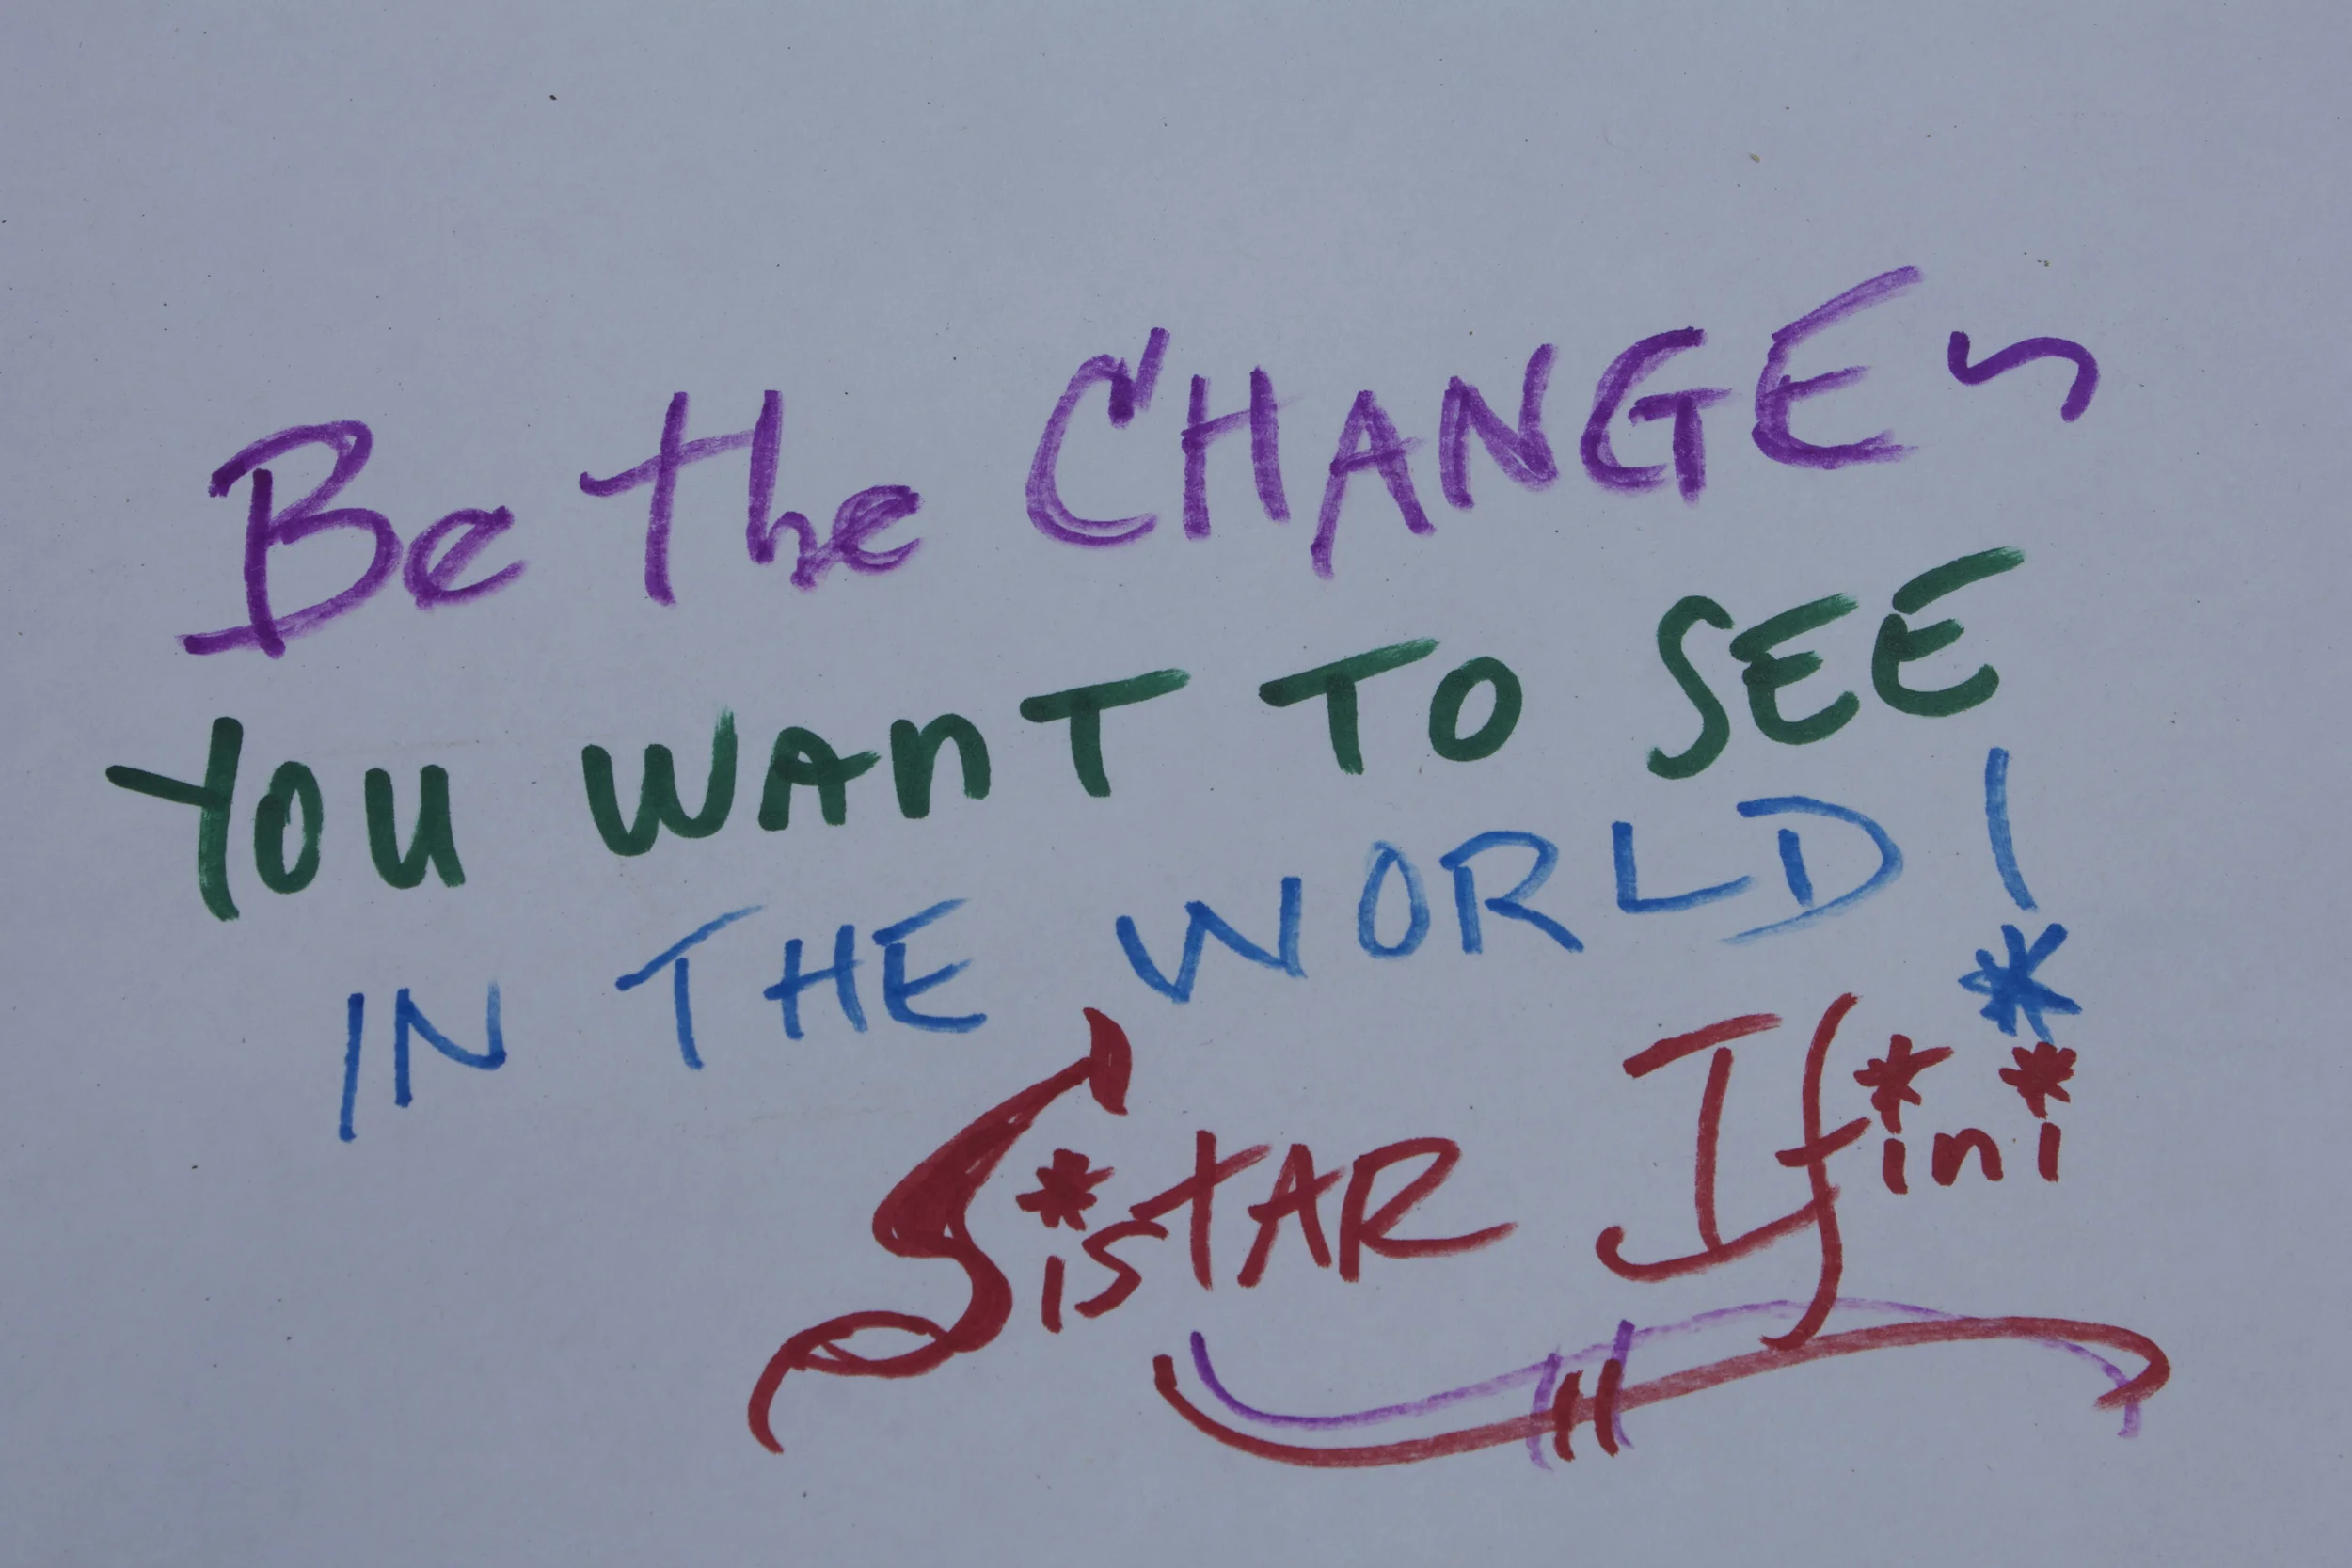 Be the CHANGE~
YOU WANT TO SEE
IN THE WORLD!
SiSTAR Ifini